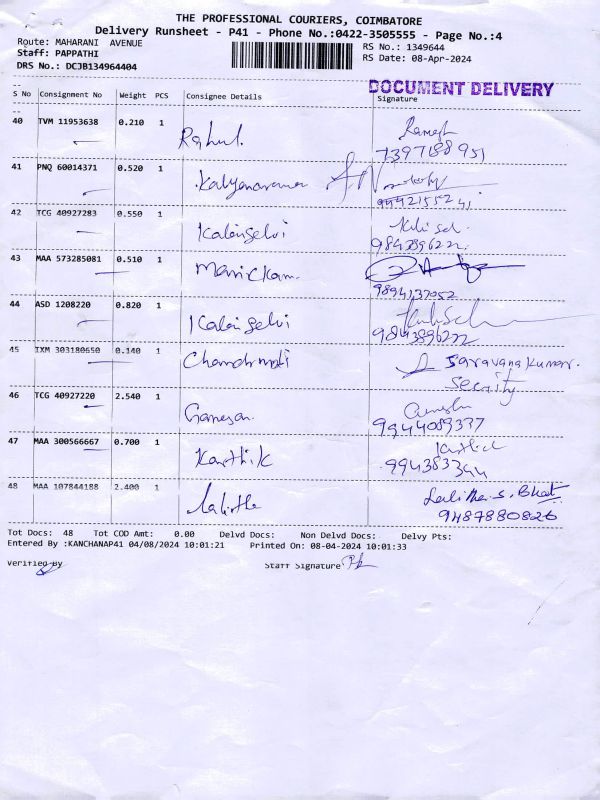 THE PROFESSIONAL COURIERS, COIMBATORE
Delivery Runsheet - P41 - Phone No.:0422-3505555 - Page No.:4
Route: MAHARANI AVENUE
RS No.: 1349644
Staff: PAPPATHI
RS Date: 08-Apr-2024
DRS No.: DCJB134964404
DOCUMENT DELIVERY
S No Consignment No Weight PCS Consignee Details Signature
40 TVM 11953638 0.210 1 Rahul. Ramesh
7397188951
41 PNQ 60014371 0.520 1 Kalyanaraman
9442155241
42 TCG 40927283 0.550 1 Kalaiselvi
9843896222
43 MAA 573285081 0.510 1 Manickam.
9894137052
44 ASD 1208220 0.820 1 Kalaiselvi
9843896222
45 IXM 303180650 0.140 1 Chandramati Saravana Kumar.
Secrity
46 TCG 40927220 2.540 1 Ganesan.
9944089337
47 MAA 300566667 0.700 1 Karthik Karthick
994383344
48 MAA 107844188 2.400 1 Lalitha Lalitha. S. Bhat
9487880826
Tot Docs: 48 Tot COD Amt: 0.00 Delvd Docs: Non Delvd Docs: Delvy Pts:
Entered By :KANCHANAP41 04/08/2024 10:01:21 Printed On: 08-04-2024 10:01:33
Verified By Staff Signature